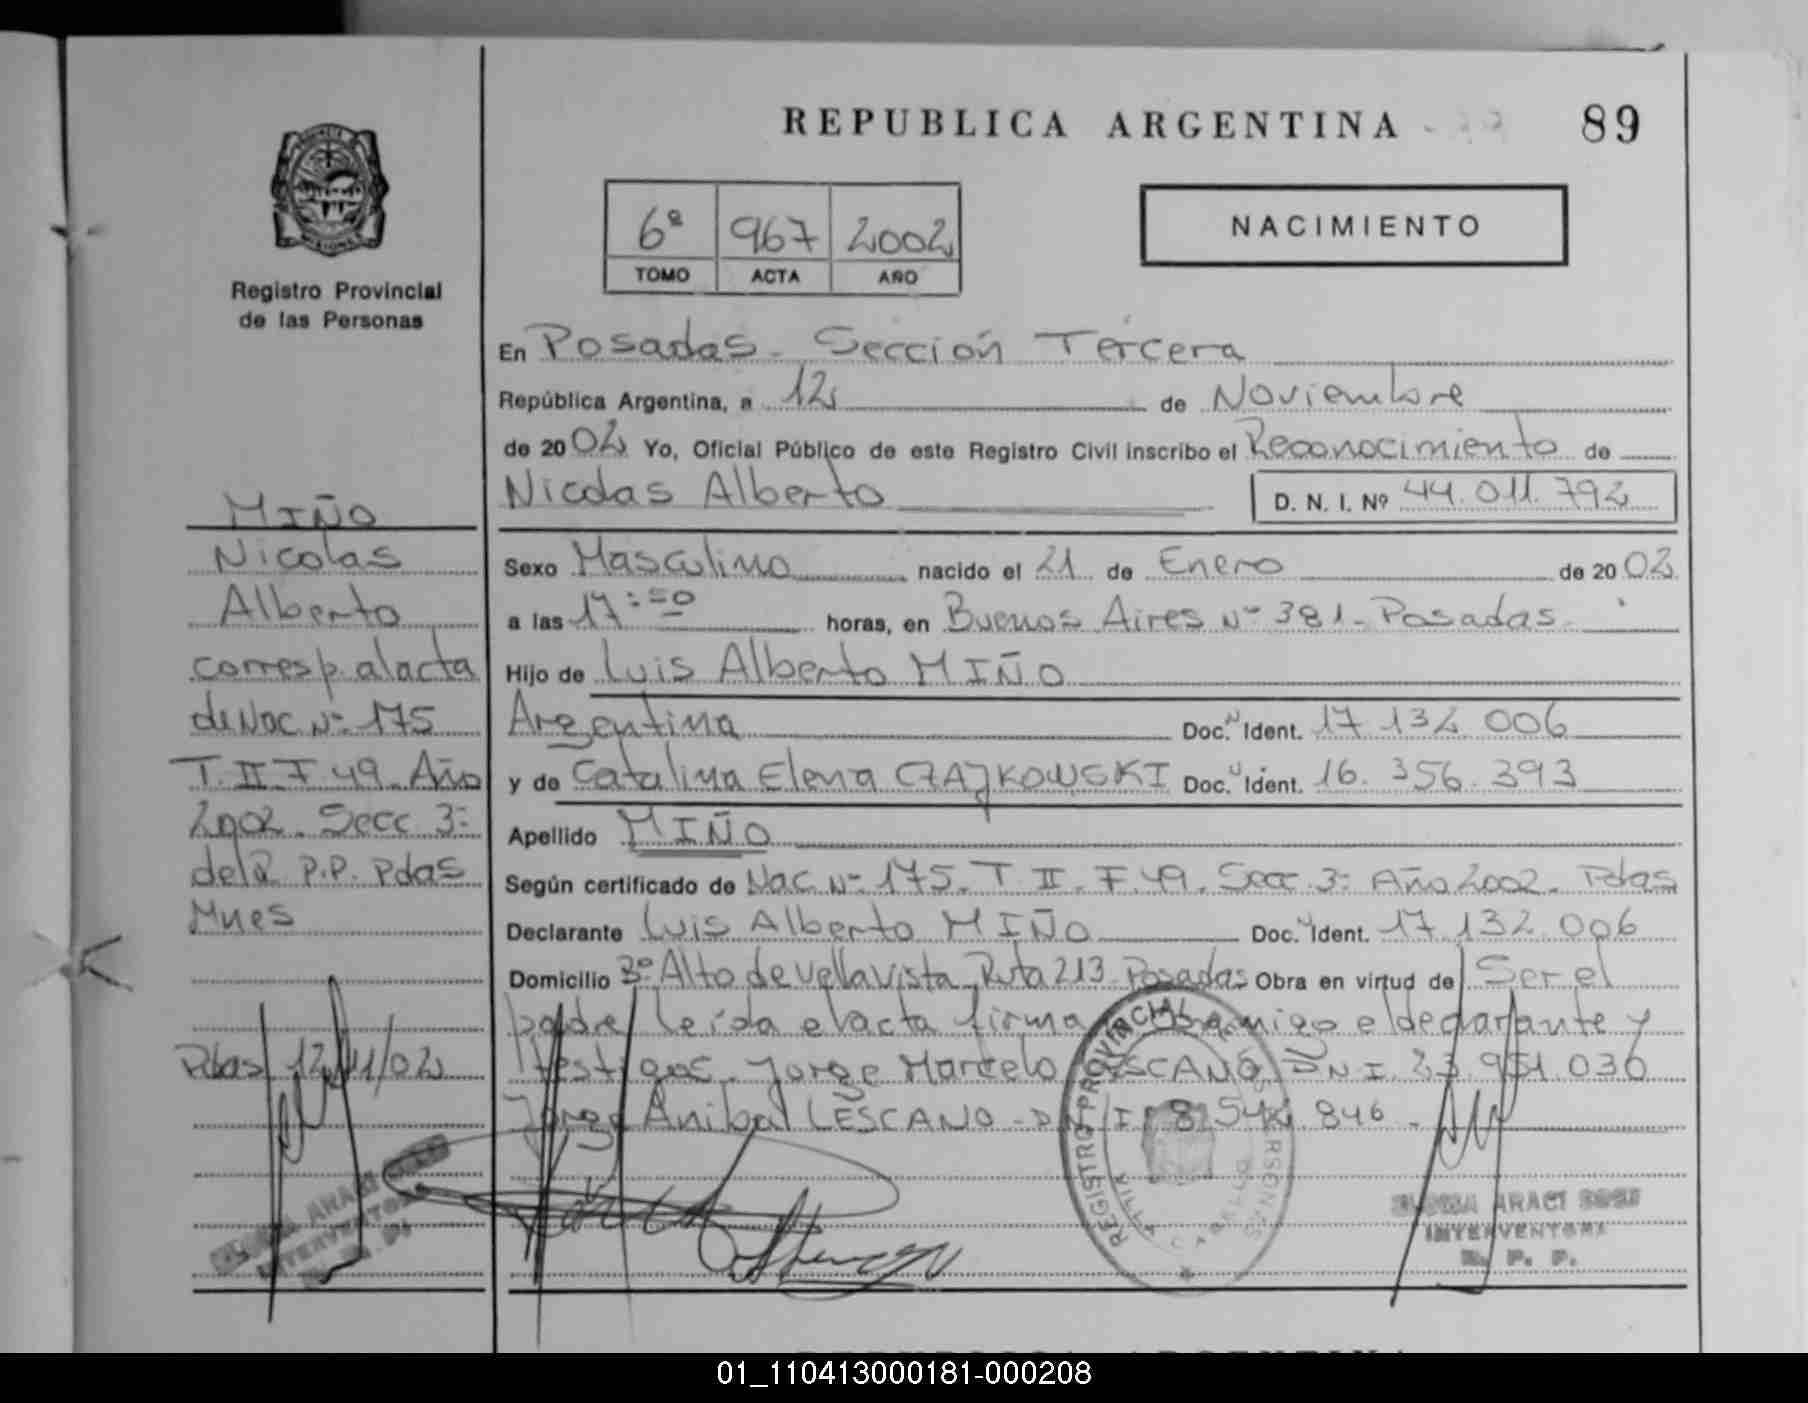 REPUBLICA ARGENTINA
89
6º 967 2002
TOMO ACTA AÑO
NACIMIENTO
Registro Provincial
de las Personas
En Posadas - Sección Tercera
República Argentina, a 12 de Noviembre
de 2002 Yo, Oficial Público de este Registro Civil inscribo el Reconocimiento de
Nicolas Alberto D. N. I. Nº 44.011.792
Sexo Masculino nacido el 21 de Enero de 2002
a las 17:50 horas, en Buenos Aires Nº 381 - Posadas
Hijo de Luis Alberto MIÑO
Argentina Doc. Ident. 17.132.006
y de Catalina Elena CZAJKOWSKI Doc. Ident. 16.356.393
Apellido MIÑO
Según certificado de Nac Nº 175 - T II - F 49 - Secc 3º Año 2002 - Pdas
Declarante Luis Alberto MIÑO Doc. Ident. 17.132.006
Domicilio 3º Alto de Vellavista Ruta 213 - Posadas Obra en virtud de Ser el
padre leída el acta firma conmigo el declarante y
testigos - Jorge Marcelo LESCANO D.N.I. 23.951.030
Jorge Anibal LESCANO - D.N.I. 8.542.846 -
MIÑO
Nicolas
Alberto
corresp. al acta
de Nac Nº 175
T. II F 49 - Año
2002 - Secc 3º
del R P.P. Pdas
Mnes
Pdas 12/11/02
ARACI
INTERVENTORA
REGISTRO PROVINCIAL
VILLA CABELLO
ARACI SOSU
INTERVENTORA
R. P. P.
01_110413000181-000208